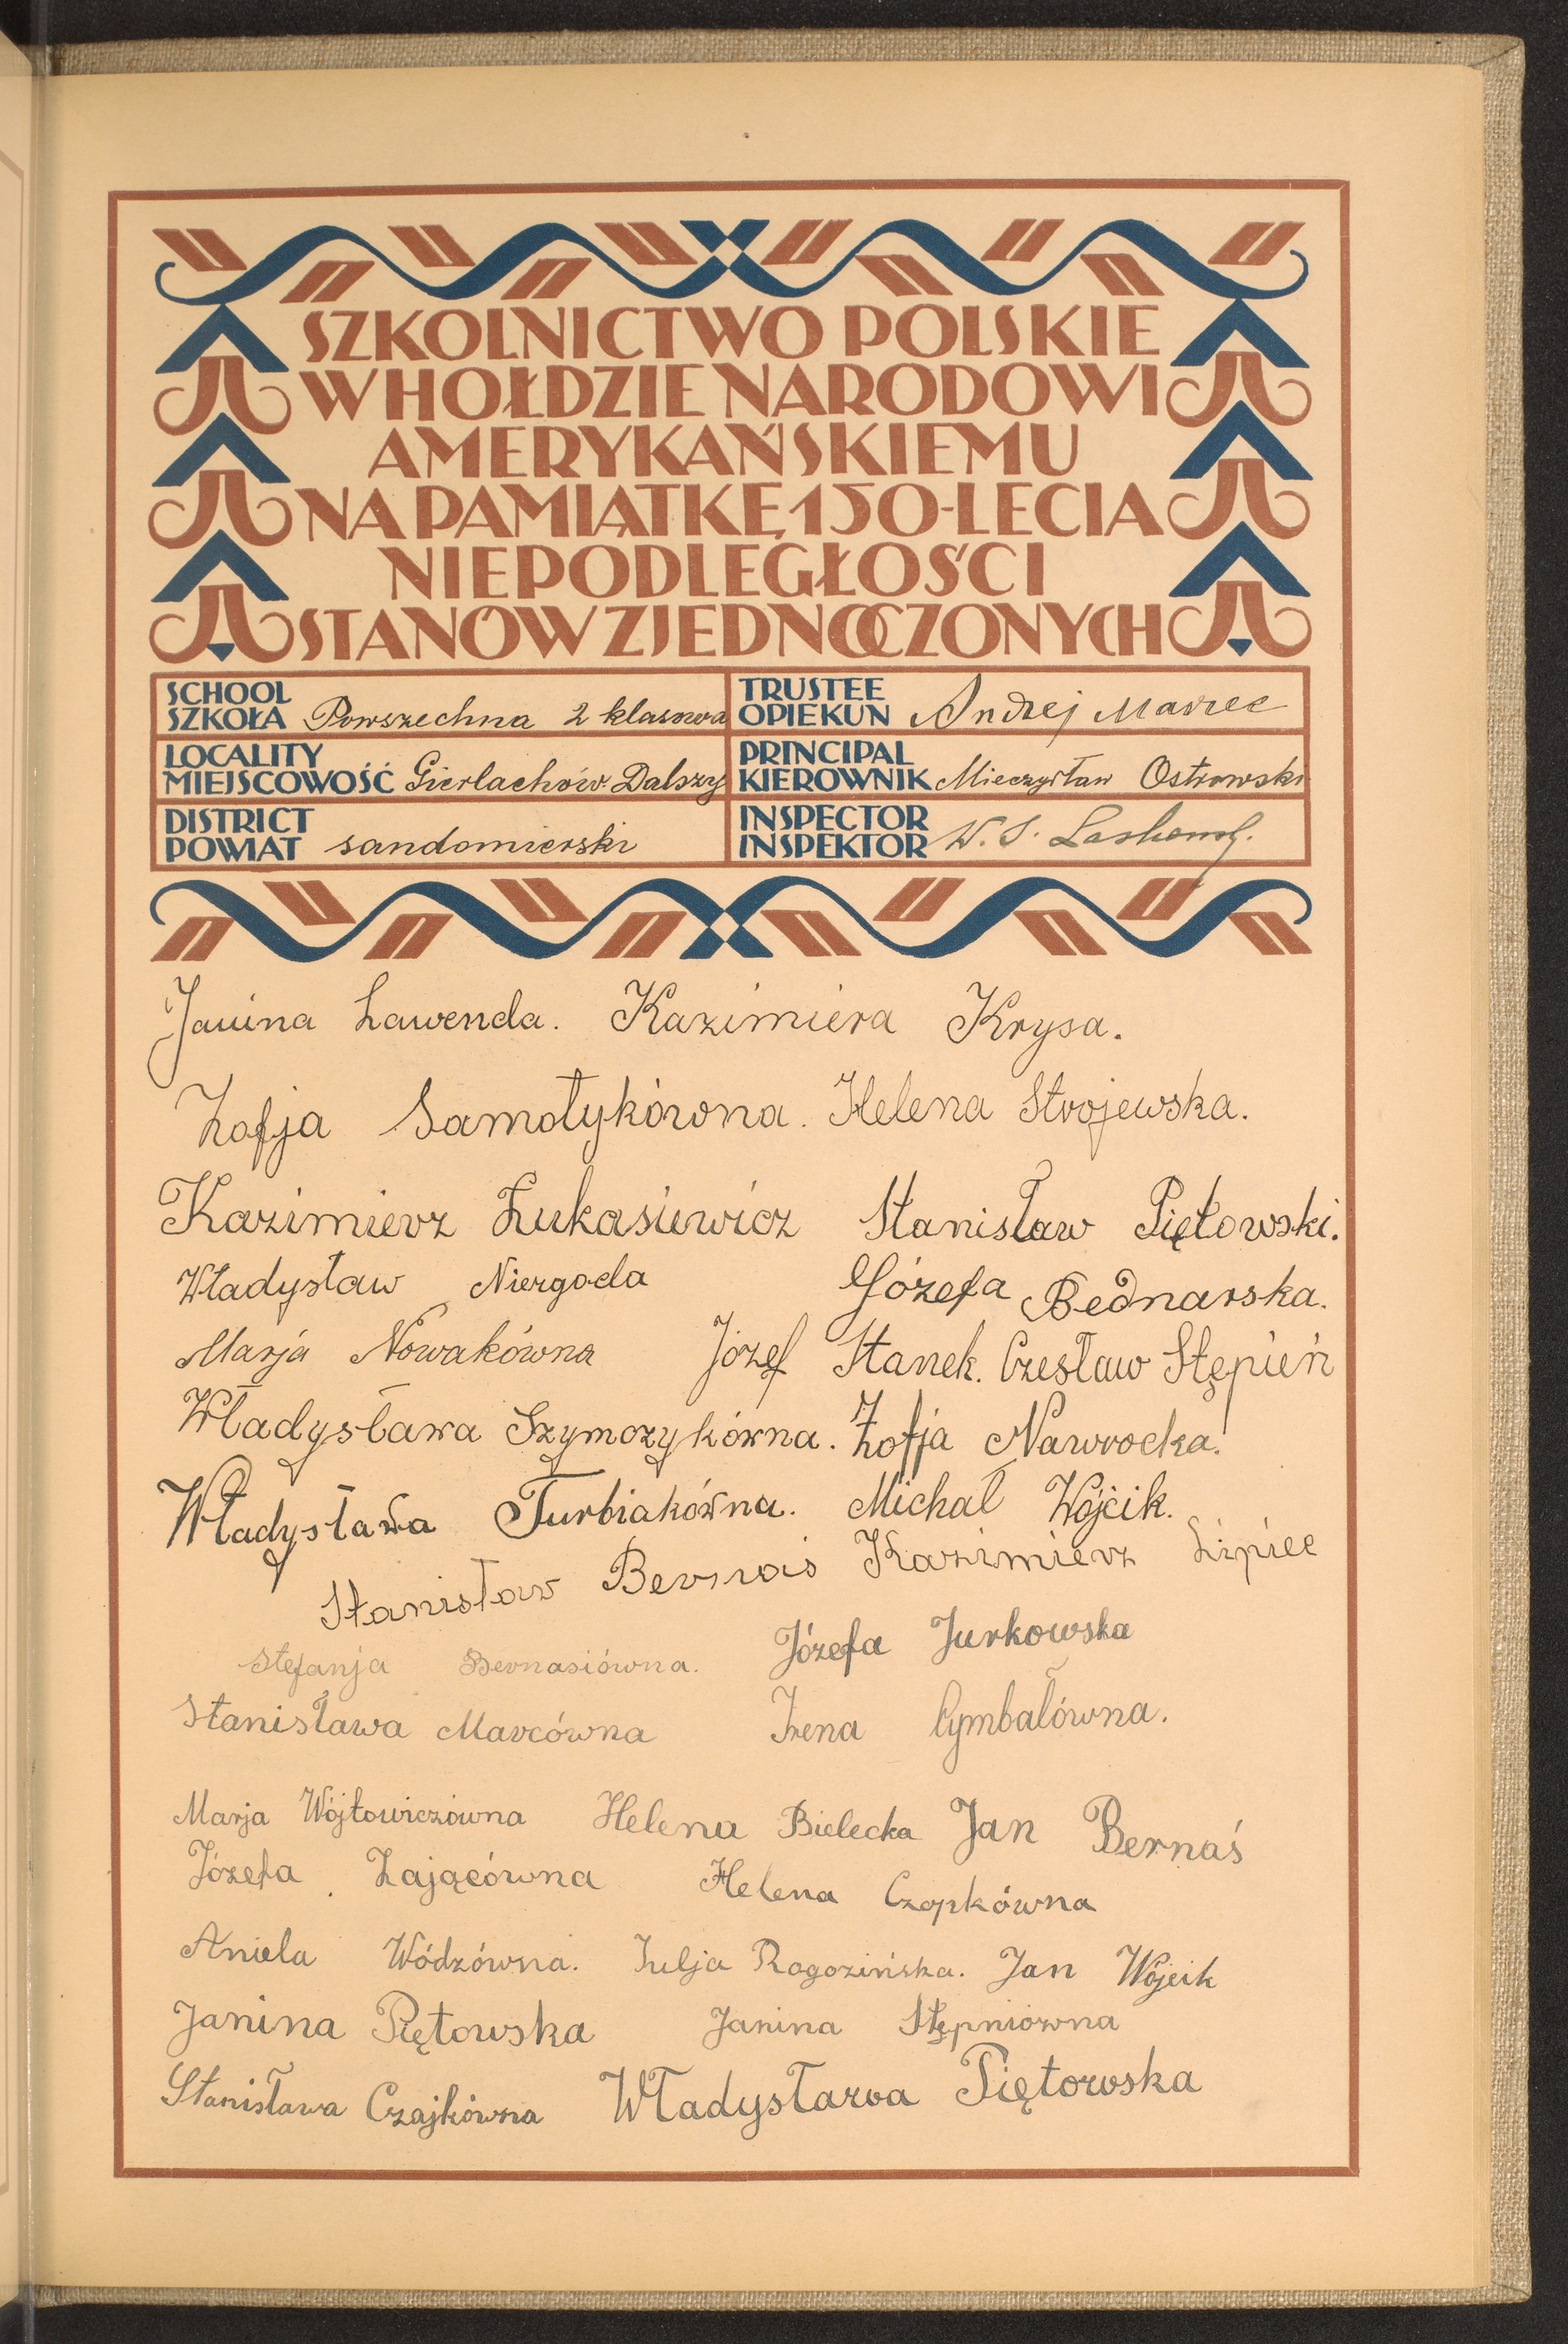 SZKOLNICTWO POLSKIE
W HOŁDZIE NARODOWI
AMERYKAŃSKIEMU
NA PAMIĄTKĘ 150-LECIA
NIEPODLEGŁOŚCI
STANÓW ZJEDNOCZONYCH
SCHOOL
SZKOŁA Powszechna 2 klasowa
TRUSTEE
OPIEKUN Andrzej Marzec
LOCALITY
MIEJSCOWOŚĆ Gierlachów Dalszy
PRINCIPAL
KIEROWNIK Mieczysław Ostrowski
DISTRICT
POWIAT sandomierski
INSPECTOR
INSPEKTOR W. S.
Janina Lawenda. Kazimiera Krysa.
Zofja Samotykówna. Helena Strojewska.
Kazimierz Łukasiewicz Stanisław Piętowski.
Władysław Niezgoda Józefa Bednarska.
Marja Nowakówna Józef Stanek. Czesław Stępień
Władysława Szymczykówna. Zofja Nawrocka.
Władysława Turbiakówna. Michał Wójcik.
Stanisław Bernaś Kazimierz Lipiec
Stefanja Bernasiówna. Józefa Jurkowska
Stanisława Marcówna Irena Cymbałówna.
Marja Wójtowiczówna Helena Bielecka Jan Bernaś
Józefa Zającówna Helena Czopkówna
Aniela Wódzówna. Julja Rogozińska. Jan Wójcik
Janina Piętowska Janina Stępniówna
Stanisława Czajkówna Władysława Piętowska